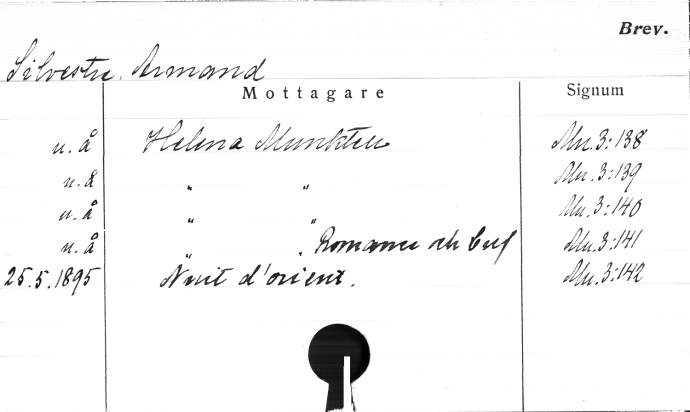 Brev.
Silvestre, Armand
Mottagare Signum
u. å Helena Munktell Mu. 3:138
u. å " " Mu. 3:139
u. å " " Mu. 3:140
u. å " " Romance du Mu. 3:141
25.5.1895 Nuit d'orient. Mu. 3:142